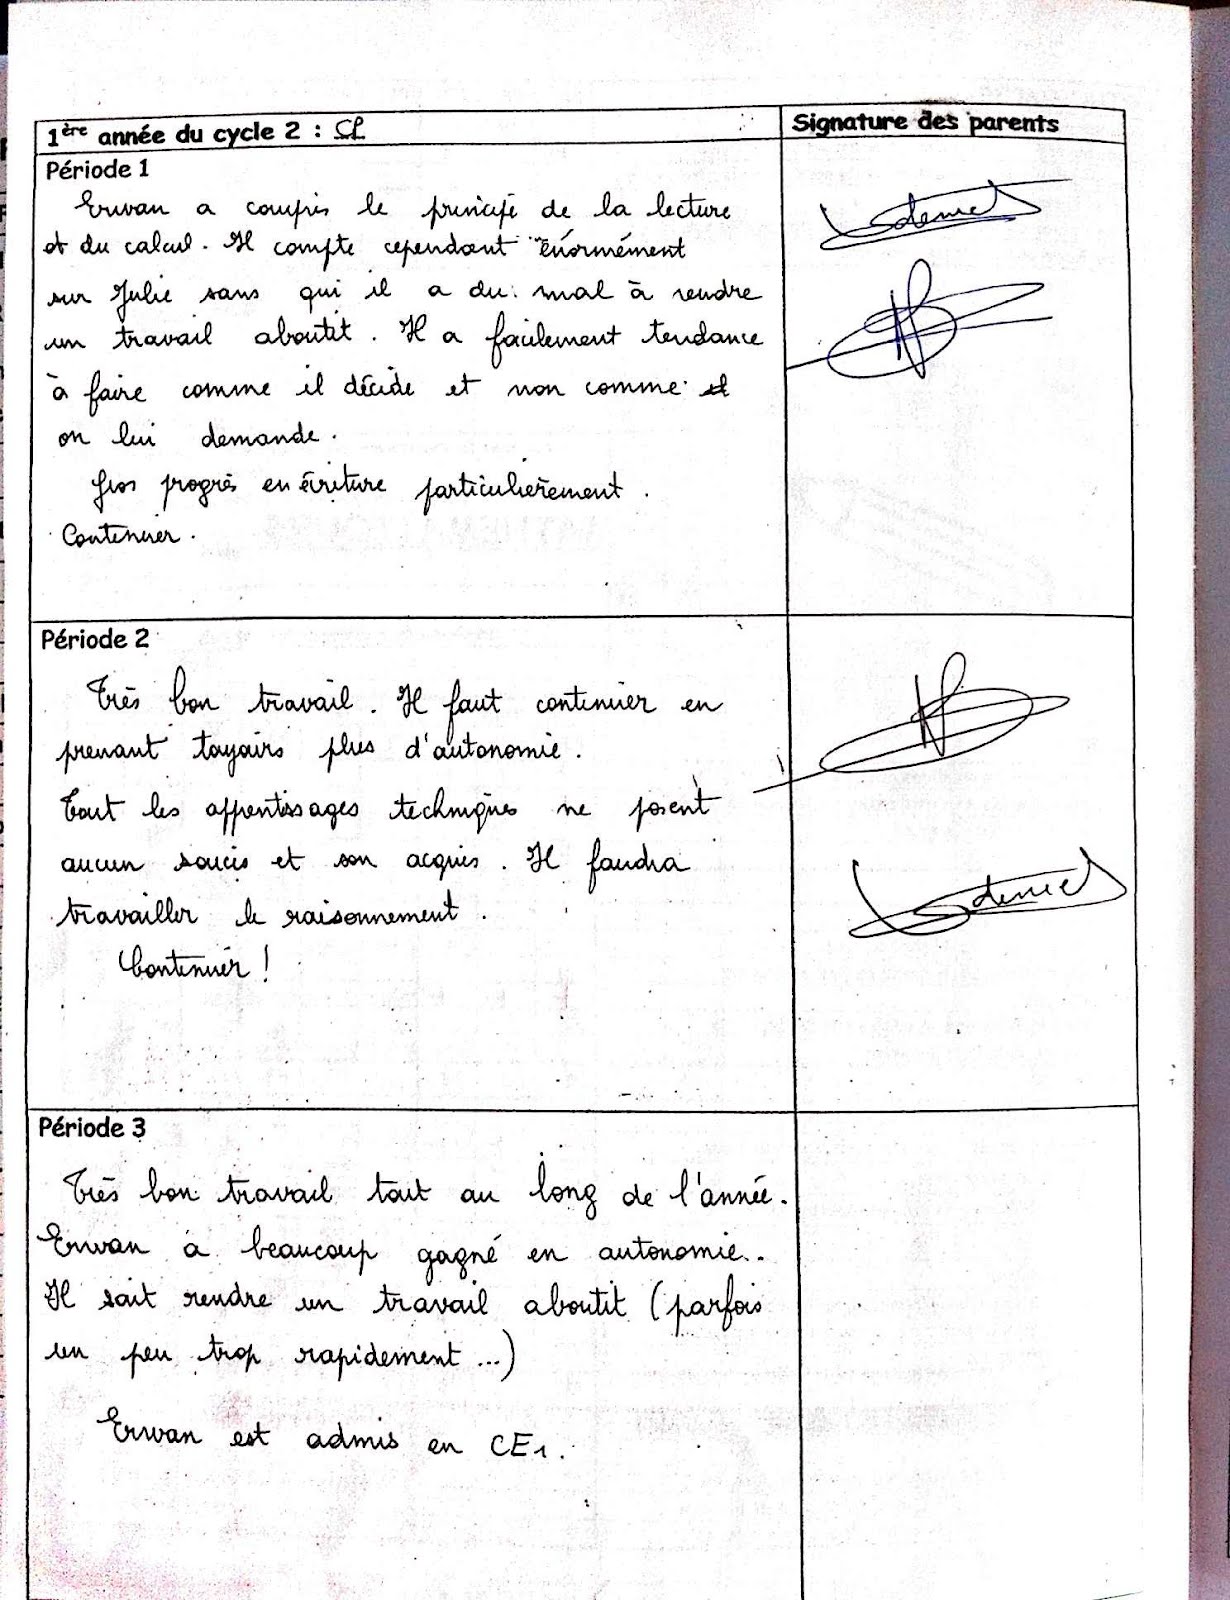 1ère année du cycle 2 : CP
Signature des parents
Période 1
Erwan a compris le principe de la lecture
et du calcul. Il compte cependant énormément
sur Julie sans qui il a du mal à rendre
un travail aboutit. Il a facilement tendance
à faire comme il décide et non comme
on lui demande.
Gros progrès en écriture particulièrement.
Continuer.
Période 2
Très bon travail. Il faut continuer en
prenant toujours plus d'autonomie.
Tout les apprentissages techniques ne posent
aucun soucis et son acquis. Il faudra
travailler le raisonnement.
Continuer !
Période 3
Très bon travail tout au long de l'année.
Erwan a beaucoup gagné en autonomie.
Il sait rendre un travail aboutit (parfois
un peu trop rapidement ...)
Erwan est admis en CE1.